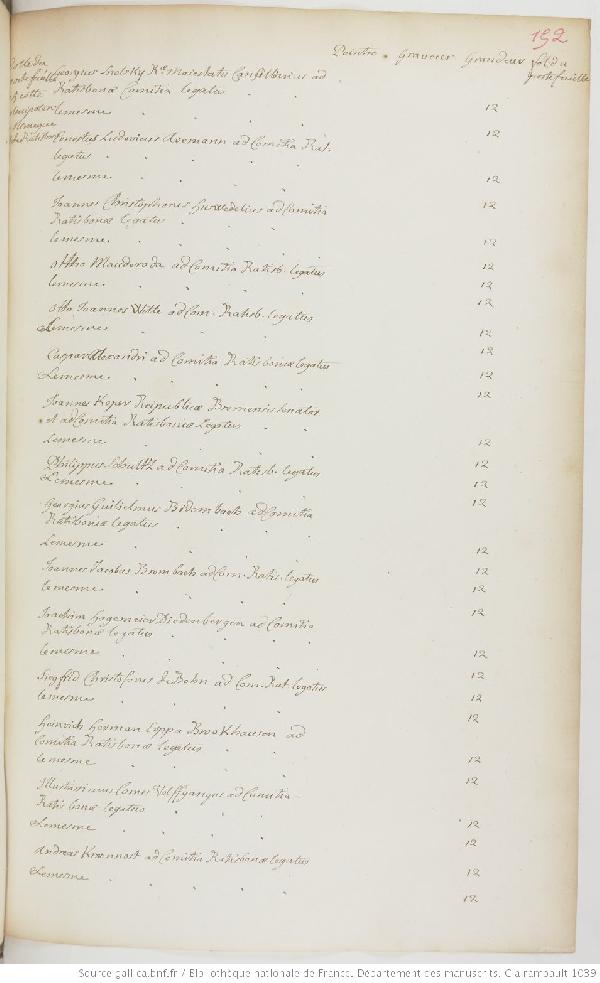 192
Peintre. Graveur Grandeur fol. du
portefeuille
Georgius Snolsky Rae Maiestatis Consiliarius ad
Ratisbonæ Comitia legatus
12
lemesme
12
Ludovicus Avemann ad Comitia Rat.
legatus
lemesme
12
Joannes Christophorus ad Comitia
12
Ratisbonæ legatus
lemesme
12
Otto Mauderode ad Comitia Ratisb. legatus
12
lemesme
12
Otto Joannes Witte ad Com. Ratisb. legatus
12
Lemesme
12
Caspar Alexandri ad Comitia Ratisbonæ legatus
12
Lemesme
12
Joannes Reipublicæ Bremensis Senator
12
et ad Comitia Ratisbonæ Legatus
lemesme
12
Philippus Schultz ad Comitia Ratisb. legatus
12
Lemesme
12
Georgius Guilielmus Bidambach ad Comitia
12
Ratisbonæ legatus
Lemesme
12
Joannes Jacobus Brombach ad Com. Ratis. legatus
12
lemesme
12
Joachim Hagemeier Diedenbergen ad Comitia
12
Ratisbonæ legatus
lemesme
12
Sigffid Christoforus de Bohn ad Com. Rat. legatus
12
lemesme
12
Heinrich Herman Coppa Brockhausen ad
12
Comitia Ratisbonæ legatus
lemesme
12
Illustrissimus Comes Volffgangus ad Comitia
12
Ratisbonæ legatus
Lemesme
12
Andreas ad Comitia Ratisbonæ legatus
12
Lemesme
12
12
Source gallica.bnf.fr / Bibliothèque nationale de France. Département des manuscrits. Clairambault 1039